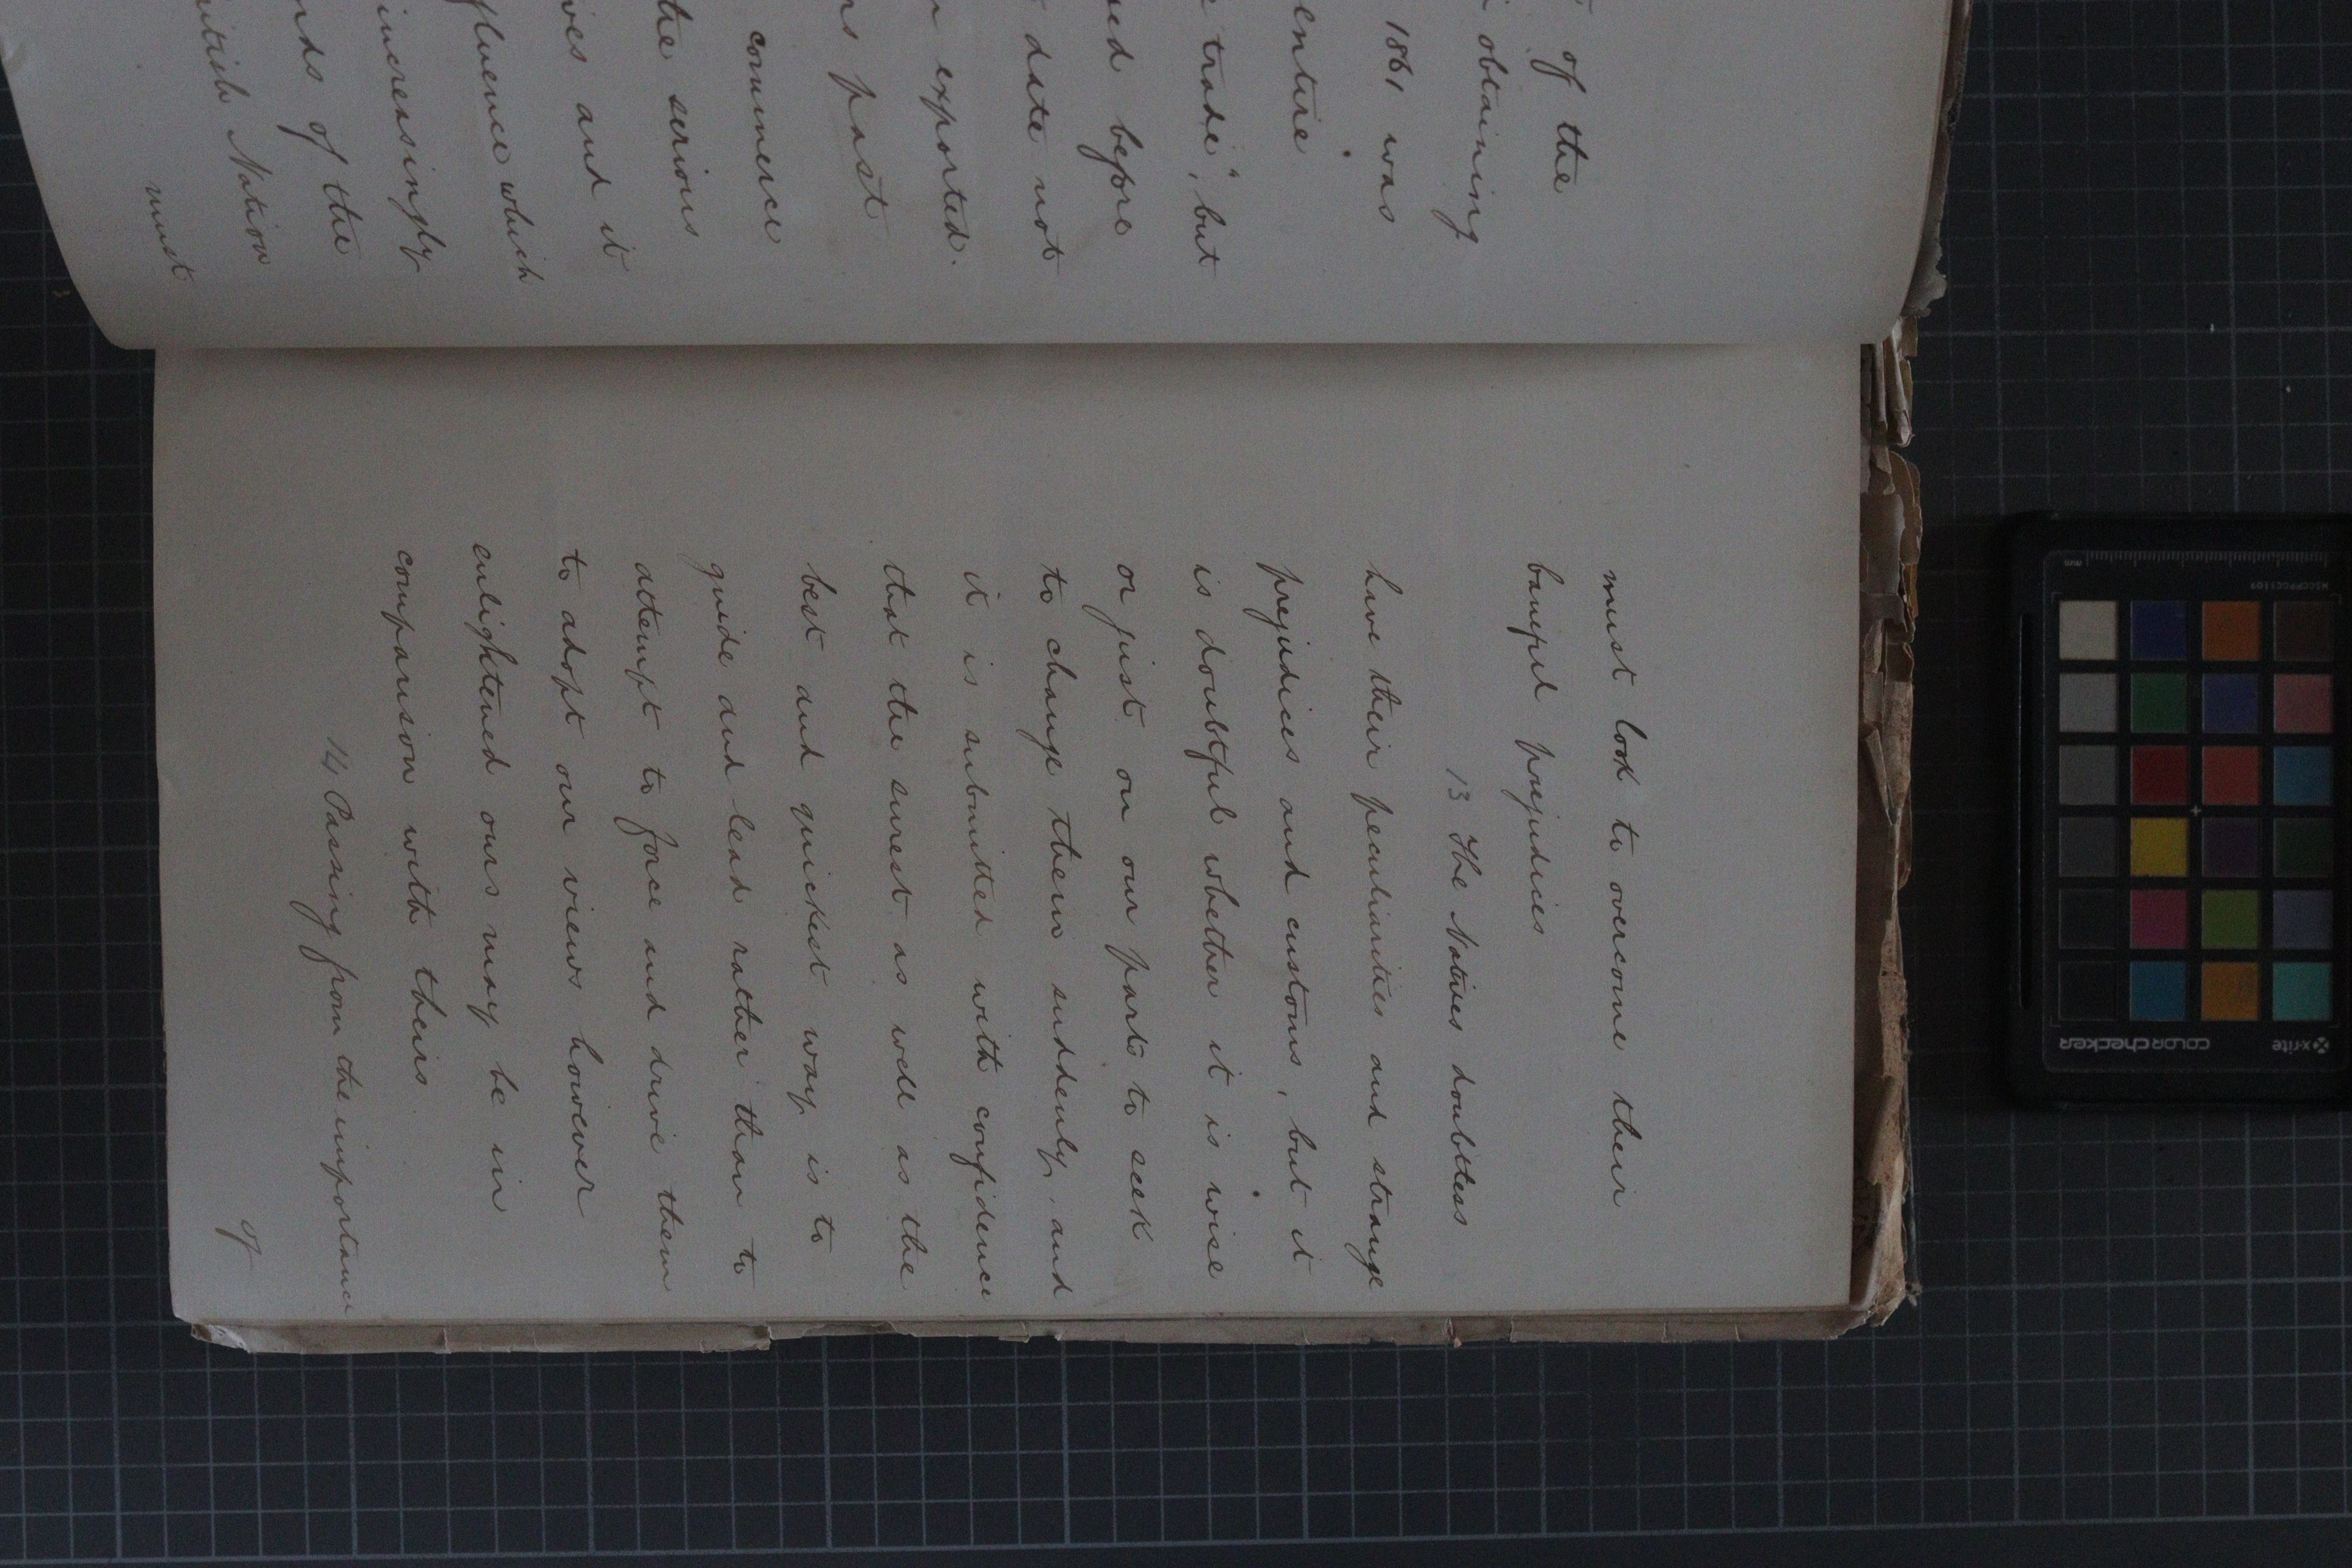 of the
obtaining
1861 was
entire
trade", but
before
date not
exported.
past
commerce
the serious
and it
which
increasingly
of the
Nation
must
must look to overcome their
baneful prejudices
13 The Natives doubtless
have their peculiarities and strange
prejudices and customs, but it
is doubtful whether it is wise
or just on our parts to seek
to change them suddenly, and
it is submitted with confidence
that the surest as well as the
best and quickest way is to
guide and lead rather than to
attempt to force and drive them
to adopt our views however
enlightened ours may be in
comparison with theirs
14 Passing from the importance
of
x-rite
colorchecker
MSCCPPCC1109
mm